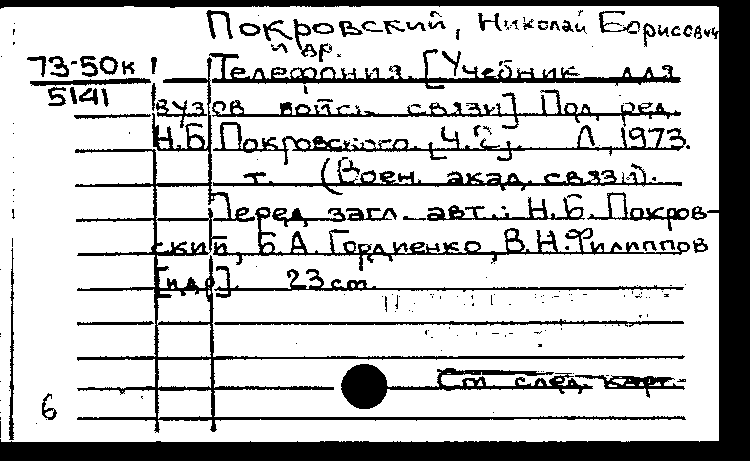 Покровский, Николай Борисович
и др.
73-50к
5141
Телефония. [Учебник для
вузов войск связи] Под ред.
Н.Б. Покровского. [Ч. 2]. Л., 1973.
т. (Воен. акад. связи).
Перед загл. авт.: Н.Б. Покров-
ский, Б.А. Гордиенко, В.Н. Филиппов
[и др]. 23 см.
См след. карт.
6